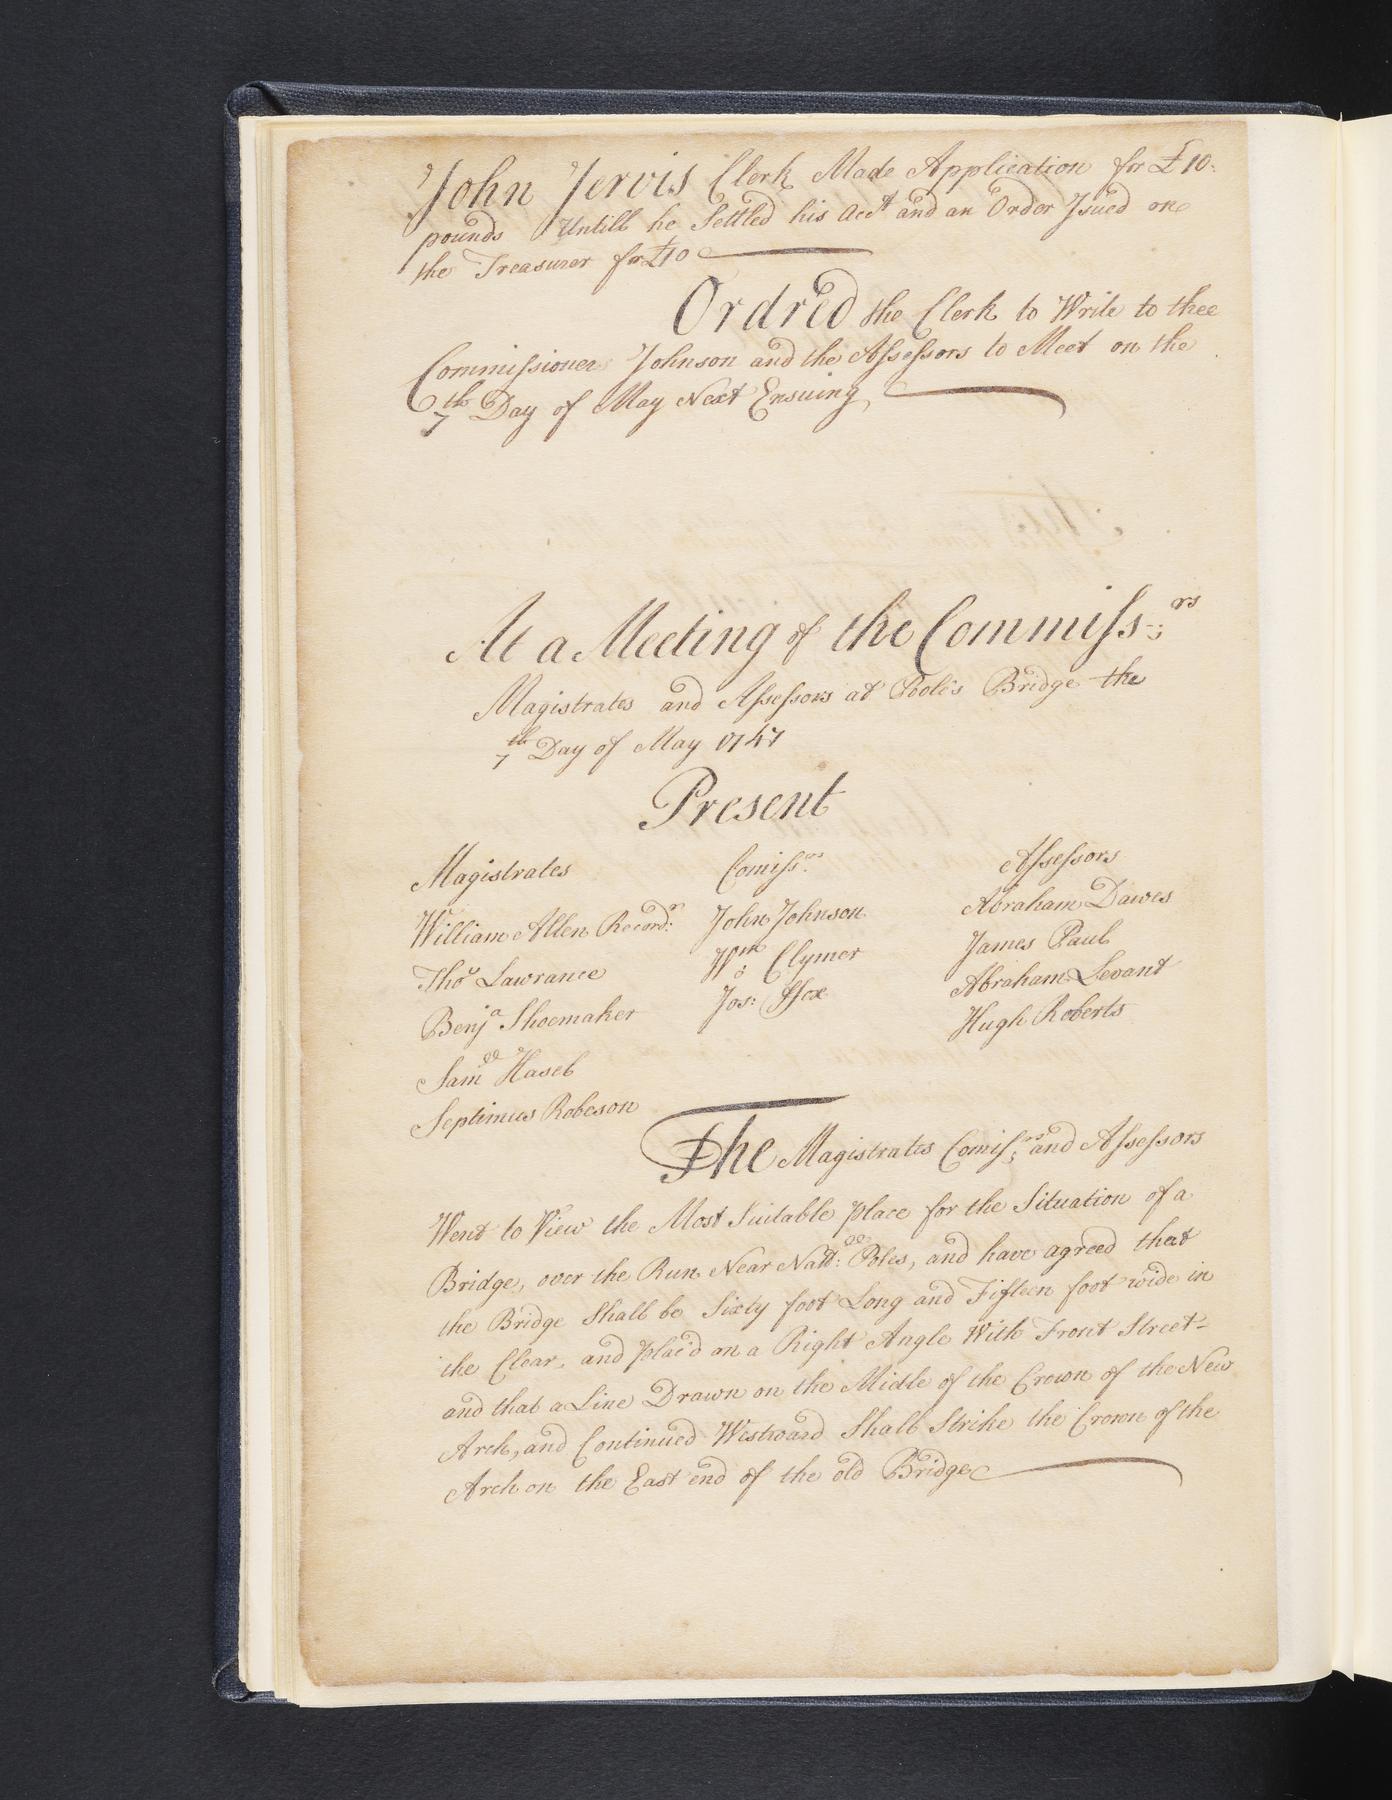 John Jervis Clerk Made Application for £10:
pounds Untill he Settled his Acct and an Order Isued on
the Treasurer for £10
Ordred the Clerk to Write to thee
Commissioner Johnson and the Assessors to Meet on the
7th Day of May Next Ensuing,
At a Meeting of the Commiss:rs
Magistrates and Assessors at Poole's Bridge the
7th Day of May 1747
Present
Magistrates Comissrs Assessors
William Allen Recordr: John Johnson Abraham Dawes
Thos Lawrance Wm: Clymer James Paul
Benja Shoemaker Jos: Ffox Abraham Levant
Samll Hasel Hugh Roberts
Septimus Robeson
The Magistrates Comissrs; and Assessors
Went to View the Most Suitable place for the Situation of a
Bridge, over the Run Near Natll: Poles, and have agreed that
the Bridge Shall be Sixty foot Long and Fifteen foot wide in
the Clear, and plac'd on a Right Angle With Front Street-
and that a Line Drawn on the Midle of the Crown of the New
Arch, and Continued Westward Shall Strike the Crown of the
Arch on the East end of the old Bridge